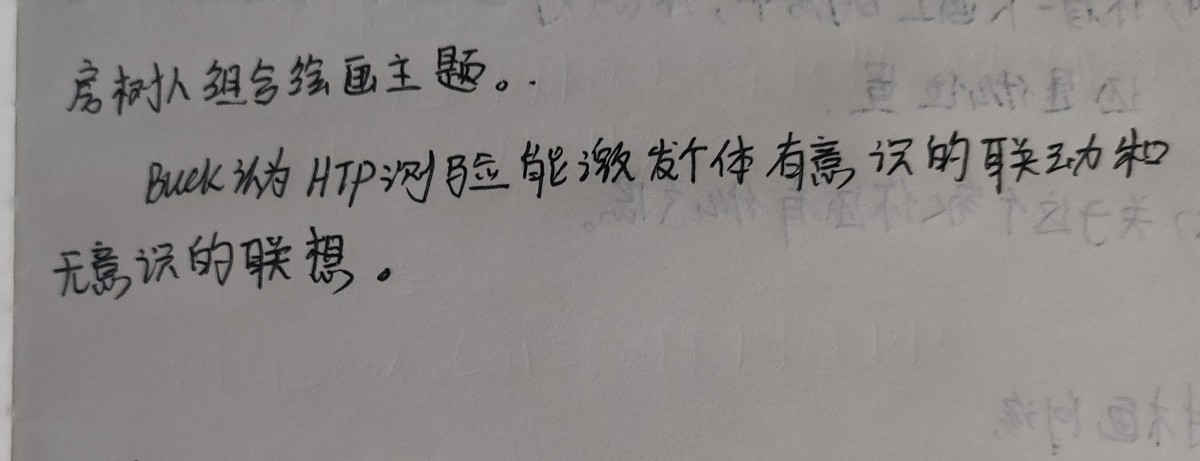 房树人组合绘画主题。.
Buck认为HTP测验能激发个体有意识的联动和
无意识的联想。